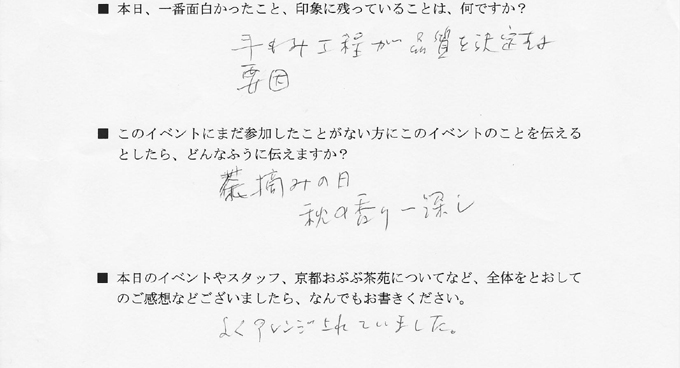 ■ 本日、一番面白かったこと、印象に残っていることは、何ですか？
手もみ工程が品質を決定する
要因
■ このイベントにまだ参加したことがない方にこのイベントのことを伝える
としたら、どんなふうに伝えますか？
茶摘みの日
秋の香り一深し
■ 本日のイベントやスタッフ、京都おぶぶ茶苑についてなど、全体をとおして
のご感想などございましたら、なんでもお書きください。
よくアレンジされていました。